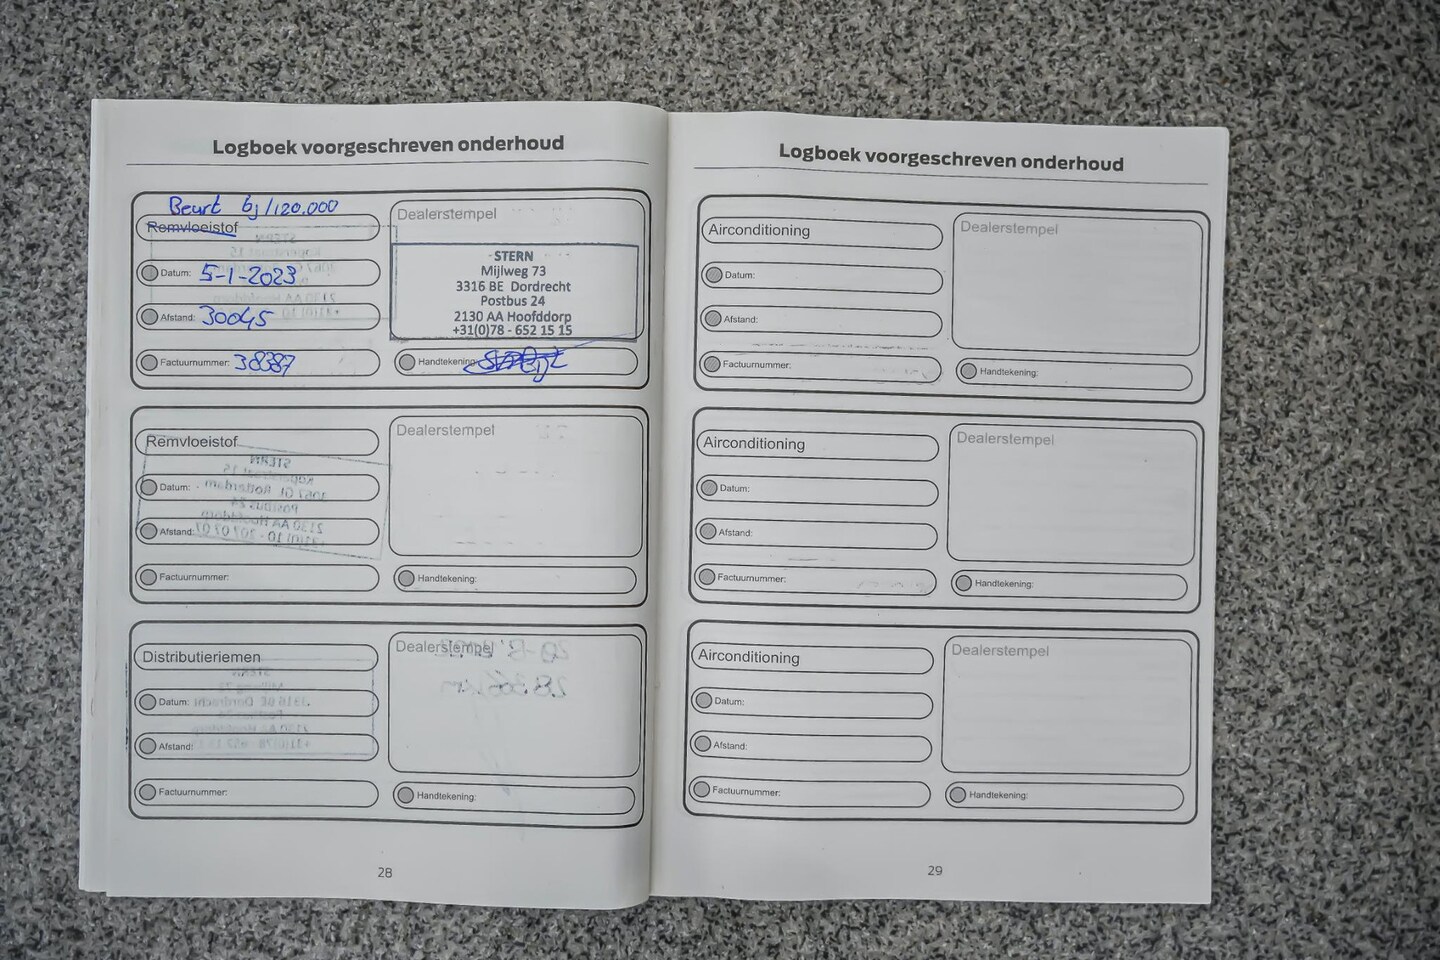 Logboek voorgeschreven onderhoud
Beurt 6j/120.000
Remvloeistof
Datum: 5-1-2023
Afstand: 30045
Factuurnummer: 38387
Dealerstempel
STERN
Mijlweg 73
3316 BE Dordrecht
Postbus 24
2130 AA Hoofddorp
+31(0)78 - 652 15 15
Handtekening:
Remvloeistof
Datum:
Afstand:
Factuurnummer:
Dealerstempel
Handtekening:
Distributieriemen
Datum:
Afstand:
Factuurnummer:
Dealerstempel
Handtekening:
28
Logboek voorgeschreven onderhoud
Airconditioning
Datum:
Afstand:
Factuurnummer:
Dealerstempel
Handtekening:
Airconditioning
Datum:
Afstand:
Factuurnummer:
Dealerstempel
Handtekening:
Airconditioning
Datum:
Afstand:
Factuurnummer:
Dealerstempel
Handtekening:
29